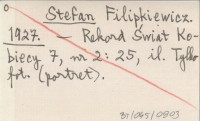 Stefan Filipkiewicz.
1927. — Rekord Świat Ko-
biecy 7, nr 2: 25, il. Tylko
fot. (portret).